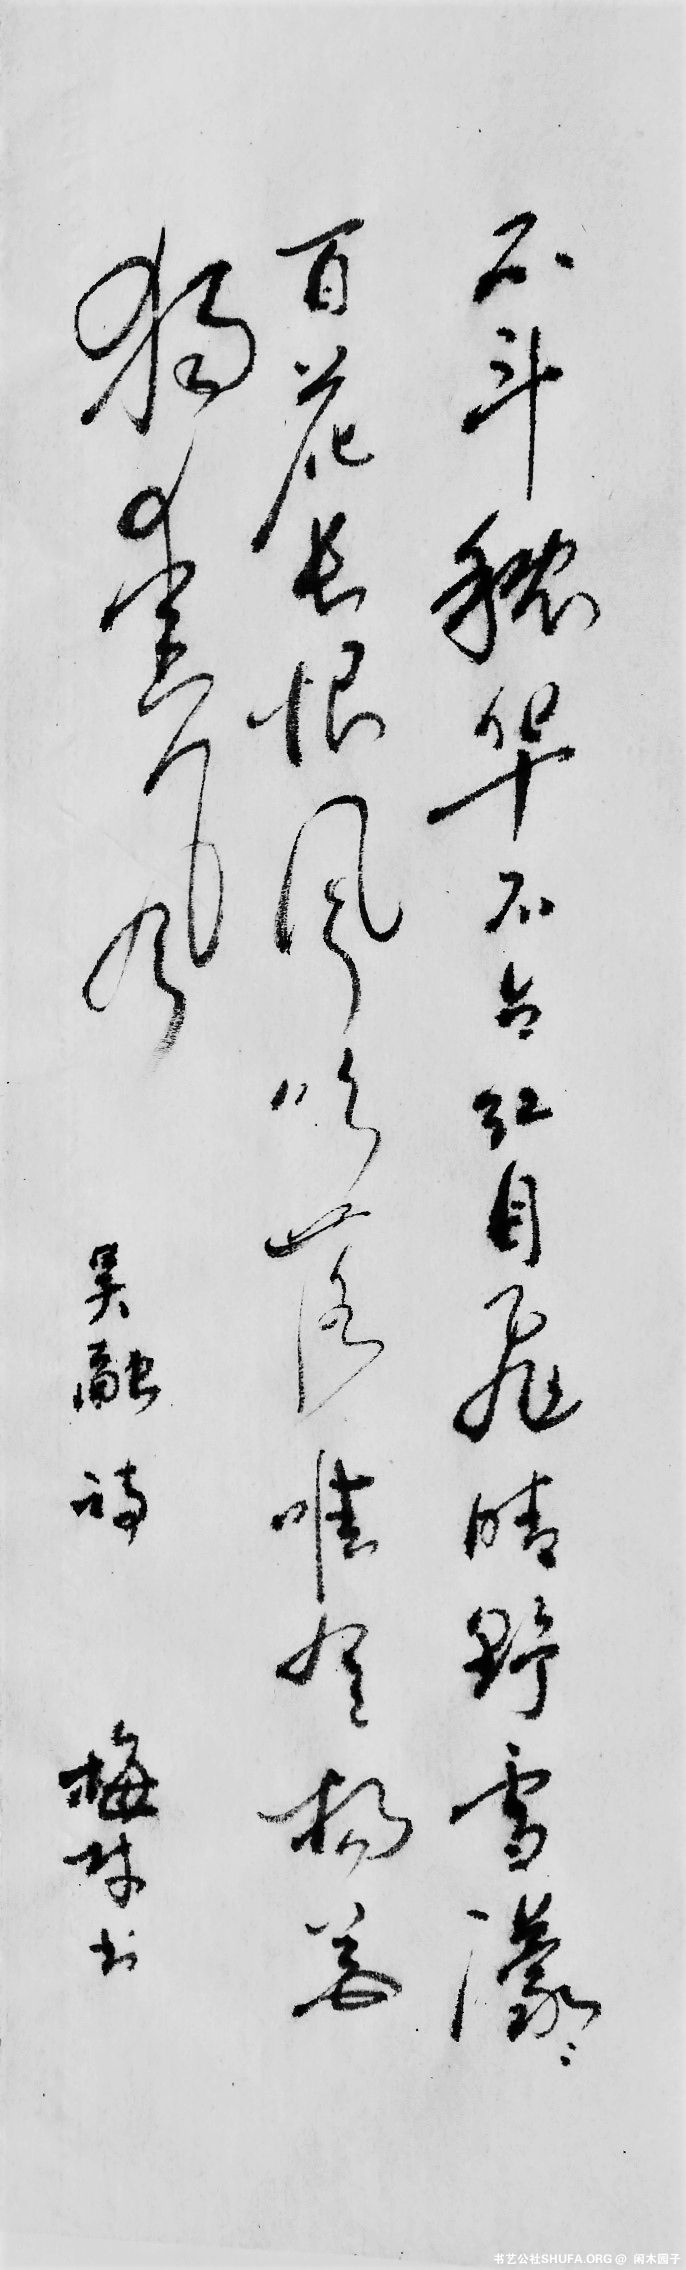 不斗秾华不占红自飞晴野雪濛〻
百花长恨风吹落唯有杨花
独爱风
吴融诗
梅时书
书艺公社SHUFA.ORG@ 闲木园子